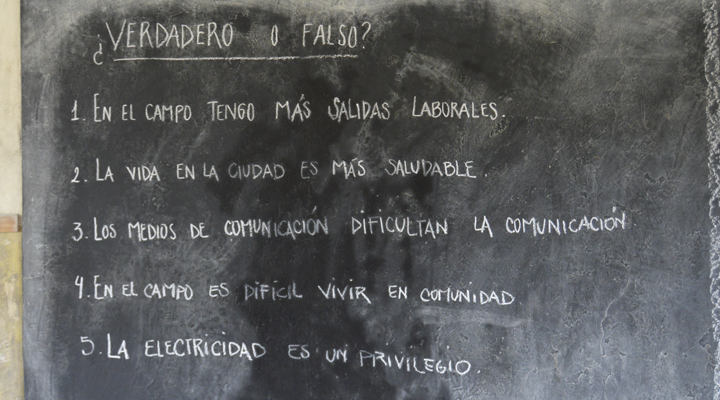 ¿VERDADERO O FALSO?
1. EN EL CAMPO TENGO MÁS SALIDAS LABORALES.
2. LA VIDA EN LA CIUDAD ES MÁS SALUDABLE.
3. LOS MEDIOS DE COMUNICACIÓN DIFICULTAN LA COMUNICACIÓN
4. EN EL CAMPO ES DIFÍCIL VIVIR EN COMUNIDAD
5. LA ELECTRICIDAD ES UN PRIVILEGIO.